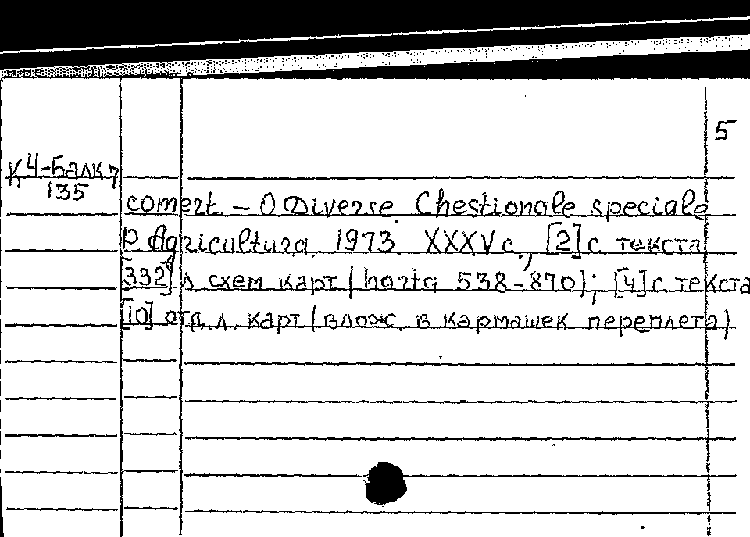 5
К 4-Балк 7
135
comert – O Diverse Chestionale speciale
P Agricultura. 1973. XXXV c., [2] с текста
[332] л схем карт (harta 538-870); [4] с текста
[10] отд. л. карт (влож. в кармашек переплета)